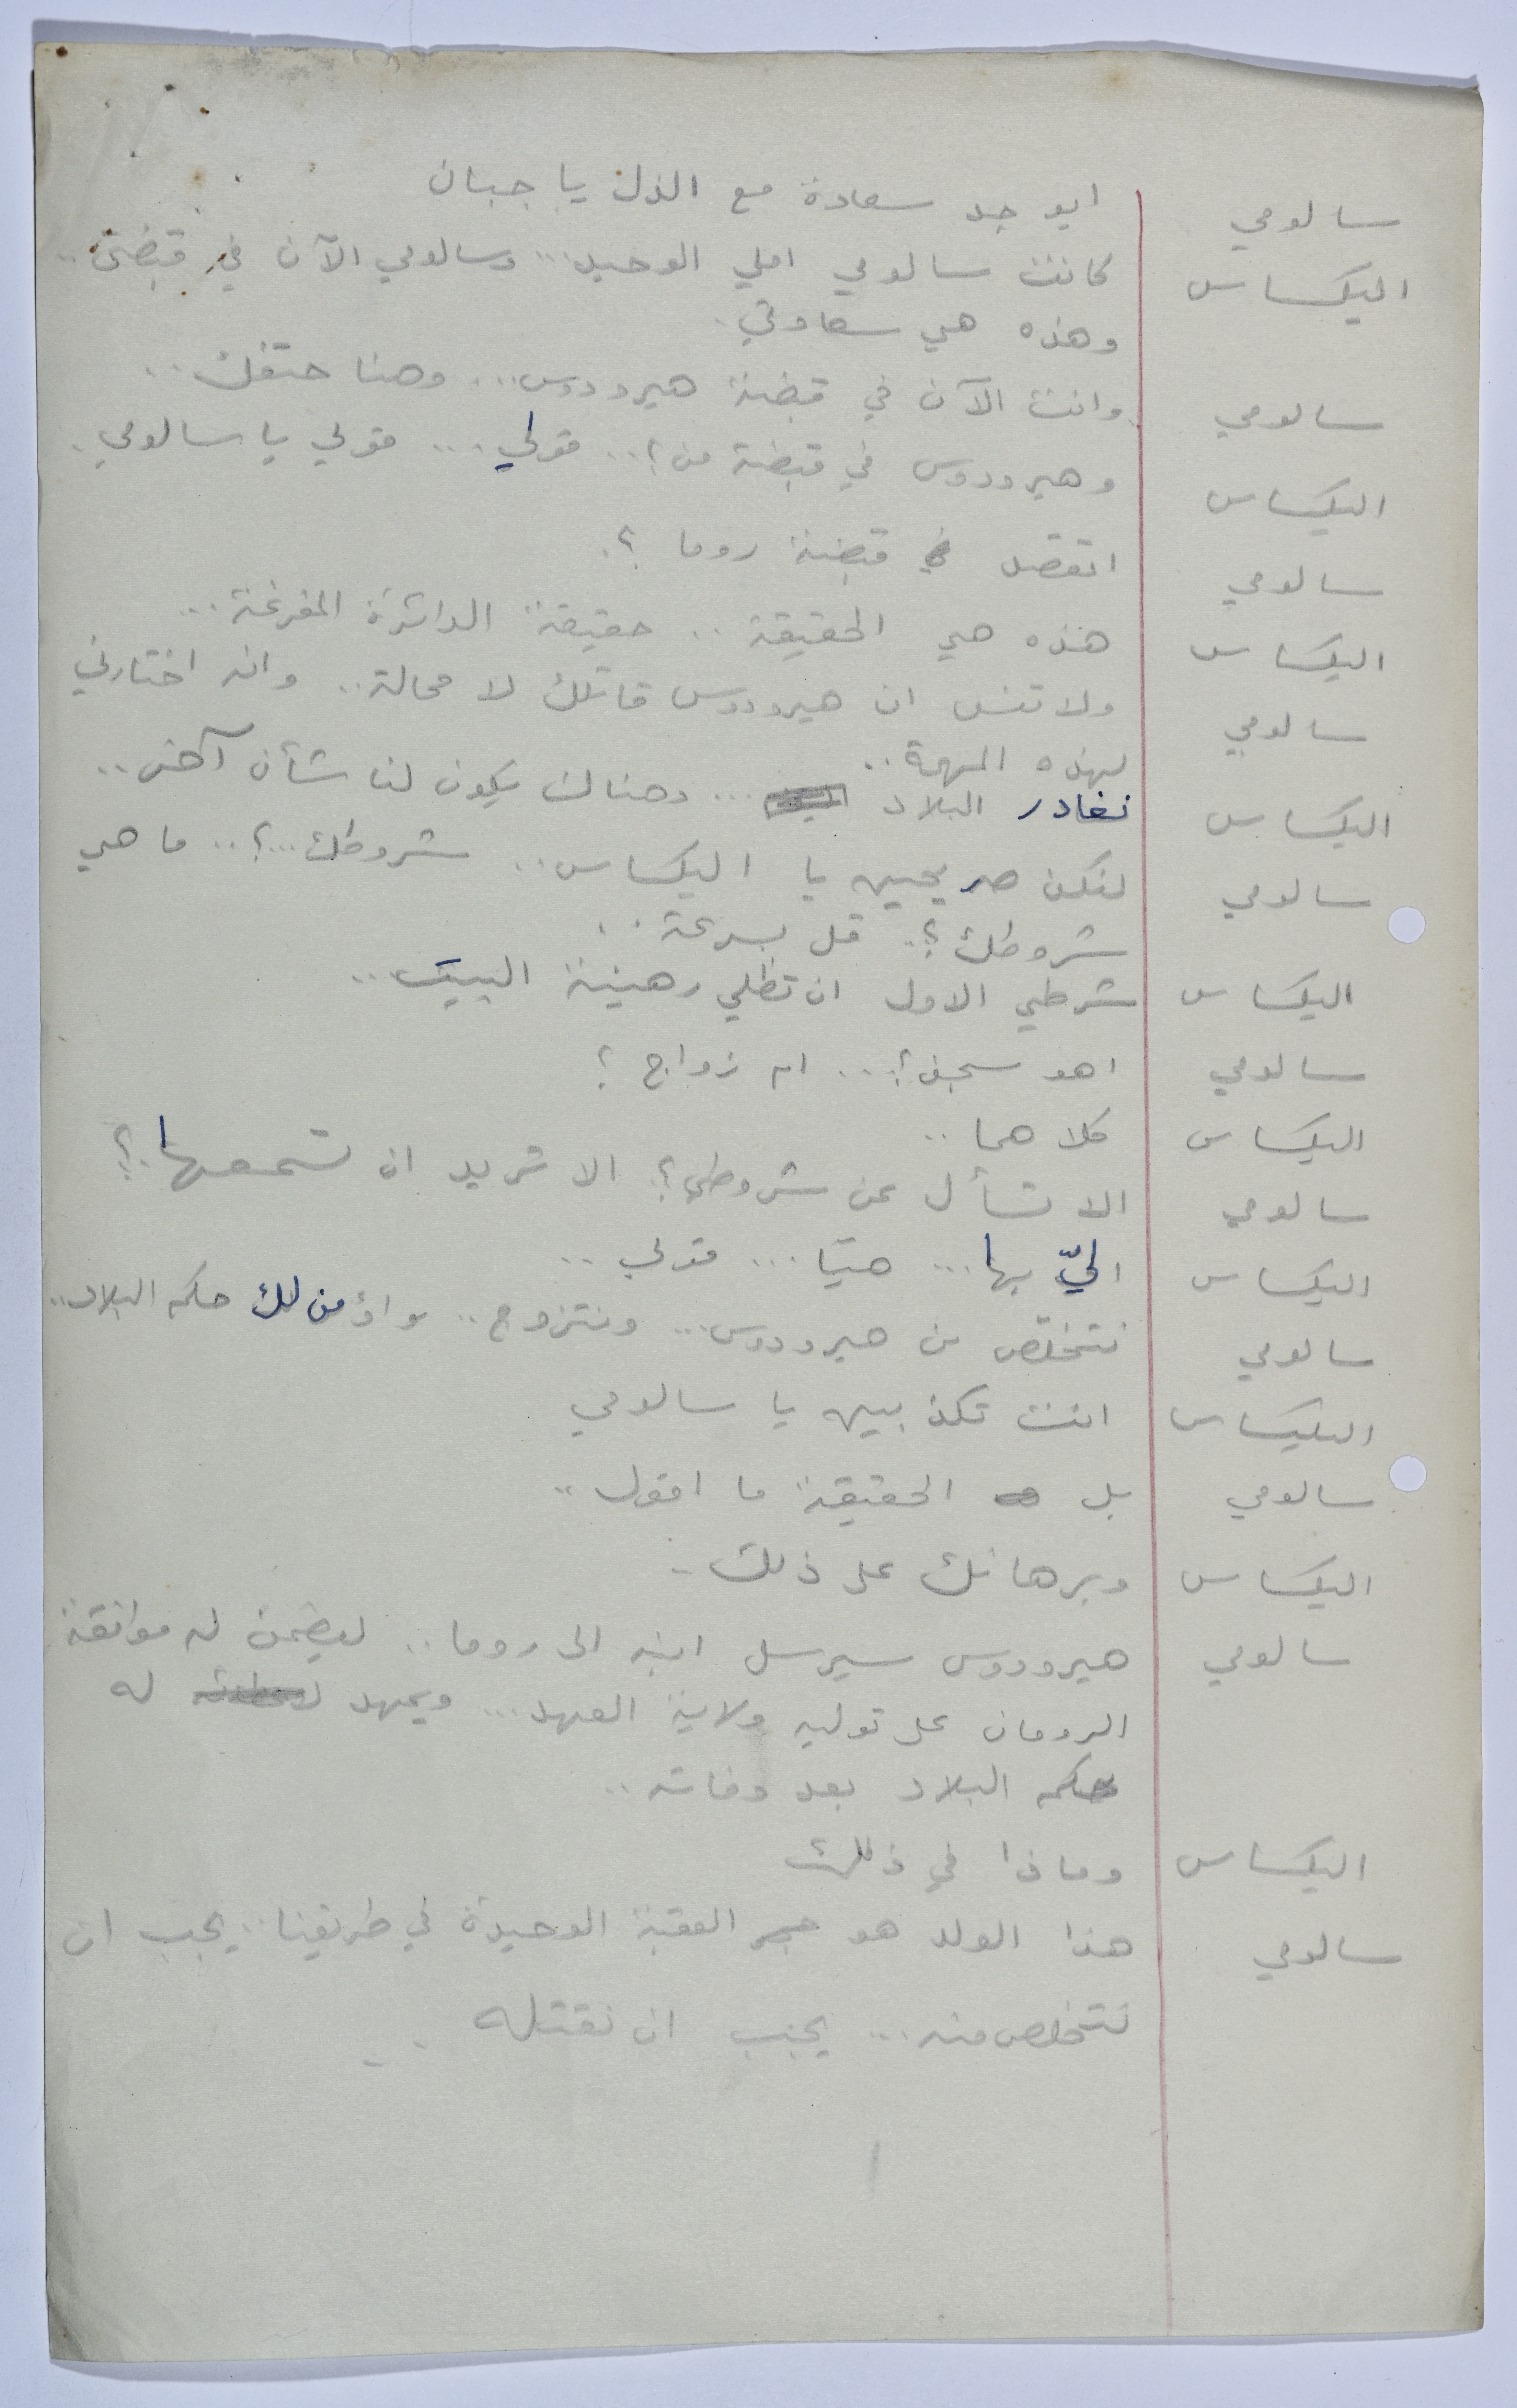 سالومي ايوجد سعادة مع الذل يا جبان
اليكساس كانت سالومي املي الوحيد... وسالومي الآن في قبضتي..
وهذه هي سعادتي.
سالومي وانت الآن في قبضة هيرودوس... وهنا حتفك..
اليكساس وهيرودوس في قبضة من؟.. قولي... قولي يا سالومي.
سالومي اتقصد في قبضة روما ؟.
اليكساس هذه هي الحقيقة.. حقيقة الدائرة المفرغة...
سالومي ولا تنس ان هيرودوس قاتلك لا محالة.. وانه اختارني
لهذه المهمة..
اليكساس نغادر البلاد ... وهناك يكون لنا شأن آخر..
سالومي لنكن صريحين يا اليكساس.. شروطك...؟.. ما هي
شروطك؟.. قل بسرعة..
اليكساس شرطي الاول ان تظلي رهينة البيت..
سالومي اهو سجن؟... ام زواج ؟
اليكساس كلاهما..
سالومي الا تسأل عن شروطي؟ الا تريد ان تسمعها.؟
اليكساس اليّ بها... هيّا... قولي..
سالومي نتخلّص من هيرودوس... ونتزوج.. واؤمن لك حكم البلاد..
اليكساس انت تكذبين يا سالومي
سالومي بل الحقيقة ما اقول..
اليكساس وبرهانك على ذلك..
سالومي هيرودوس سيرسل ابنه الى روما.. ليضمن له موافقة
الرومان على توليه ولاية العهد... ويمهد له
حكم البلاد بعد وفاته..
اليكساس وماذا في ذلك
سالومي هذا الولد هو حجر العقبة الوحيدة في طريقنا.. يجب ان
نتخلص منه... يجب ان نقتله..